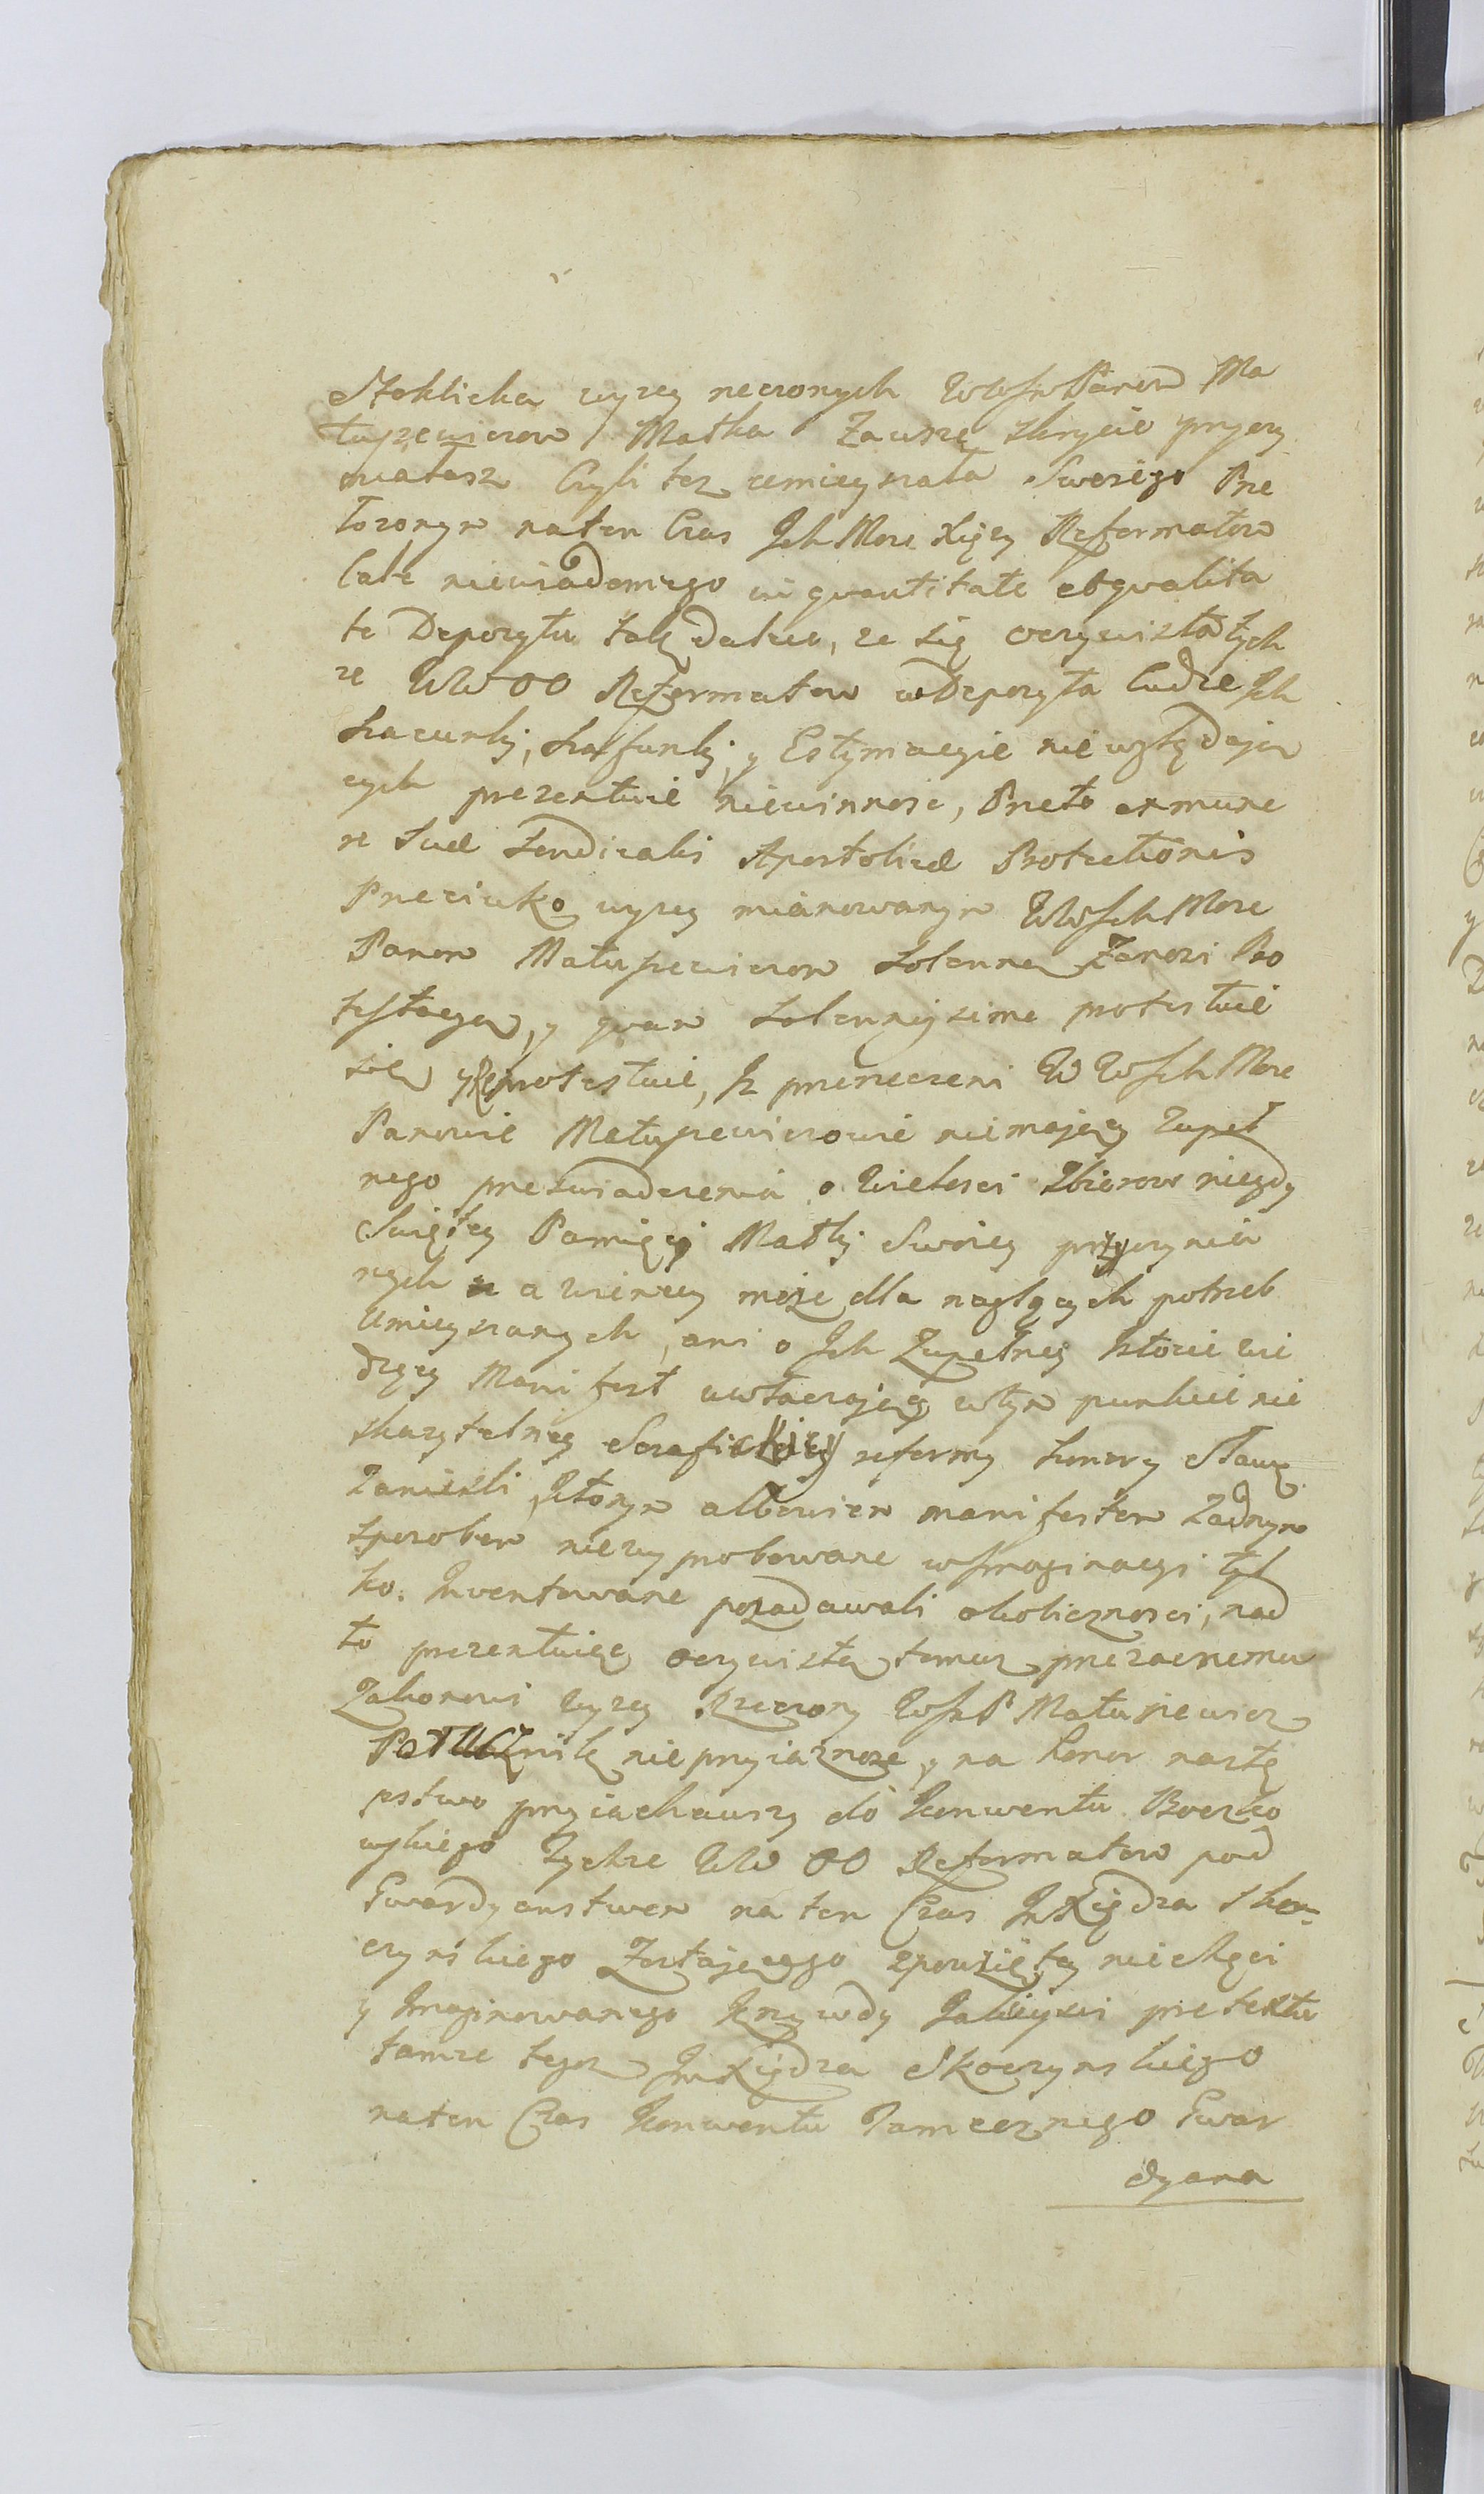 Stoklicka wyzey rzeczonych WWJch Panow Ma
tuszewiczow Matka Zawsze skrycie przecy
miałasz Czyli tez umieyszała Swoiego Prze
łozonym na ten Czas Ich Mosc Xięzy Reformatow
Całe niewiadomego in quantitate et qvalita
te Depozytu tak dalece, ze się oczywista tych
ze WW OO Reformatow w Depozyta Cudze Ich
Szacunki, Szafunki, y Estymacyie nie wzglądaią
cych prezentuie niewinnosc, Przeto ex mune
re Suae Sendicalis Apostolicae Protectionis
Przeciwko wyzey mianowanym WWJch Mosc
Panow Matuszewiczow Solenną Zanosi Pro
testacyą, y qvam Solennissime protestuie
się y Reprotestuie, Iz przerzeczeni W WJch Mosc
Panowie Matuszewiczowie niemaiący Zupeł
nego przeswiadczenia o Wielosci Zbiorow niegdy
Swiętey Pamięci Matki Swoiey przyczynio
nych a a wiencey może dla nagłących potrzeb
Umieyszanych, ani o Ich Zupełney Istocie wie
dzący Manifest uwłaczaiący w tym punkcie nie
skazytelney Serafickiey reformy honory Sławę
Zaniesli, Ktorym albowiem manifestem Zadnym
sposobem niewyprobowane w Imaginacyi tyl
ko Inventowane pozadawali okolicznosci, nad
to prezentuiąc oczywistą temuz przezacnemu
Zakonowi wyzey Rzeczony WJchP Matuszewicz
Pałucznik nieprzyiaznosc, y na honor nastę
pstwo przyiachawszy do Konwentu Boczko
wskiego Tychze WW OO Reformatow pod
Gwardyanstwem na ten Czas Jm Xiędza Skou-
czynskiego Zostaiącego z powziętey niechęci
y Imaginowanego Krzywdy Jakieysci pretextu
tamze tegoz Jm Xiędza Skoczynskiego
na ten Czas Konwentu Tamecznego Gwar
dyana